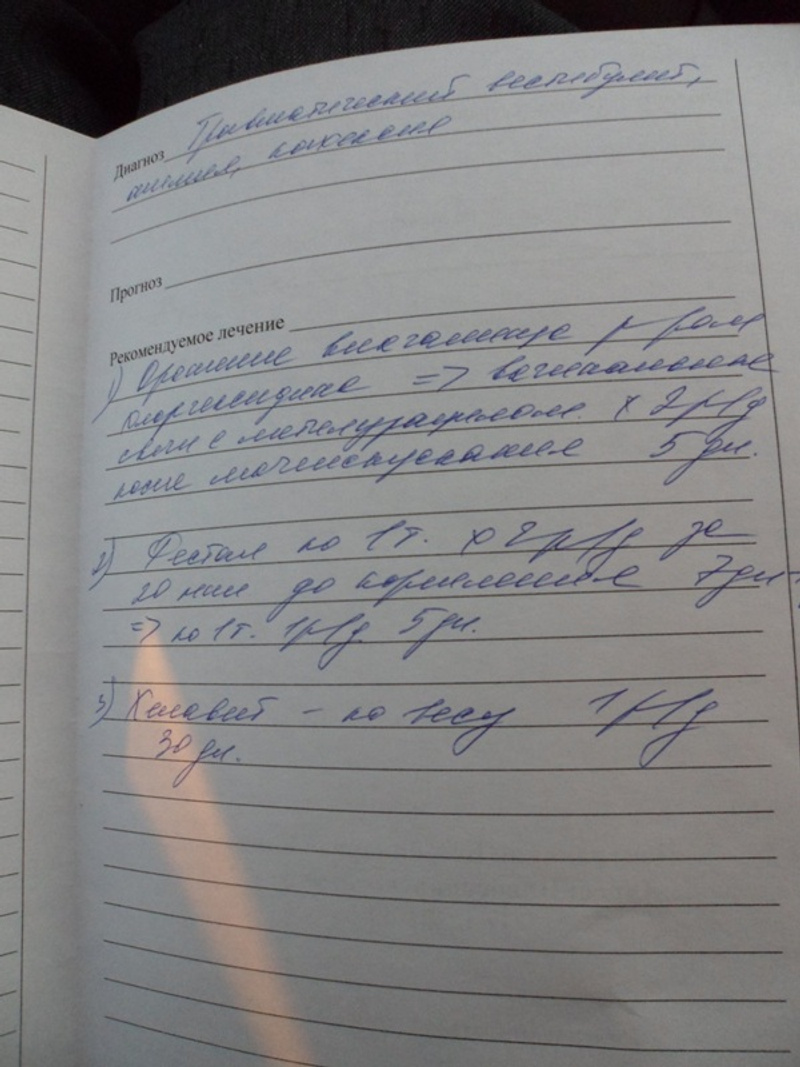 Диагноз Травматический вестибулит,
анемия,
Прогноз
Рекомендуемое лечение
1) Орошение влагалища р-ром
хлоргексидина => вагинальные
свечи с метилурацилом. х 2р/д
после мочеиспускания 5 дн.
2) Фестал по 1т. х 2р/д за
20 мин до кормления 7 дн.
=> по 1т. 1р/д 5 дн.
3) Хелавит - по весу 1р/д
30 дн.